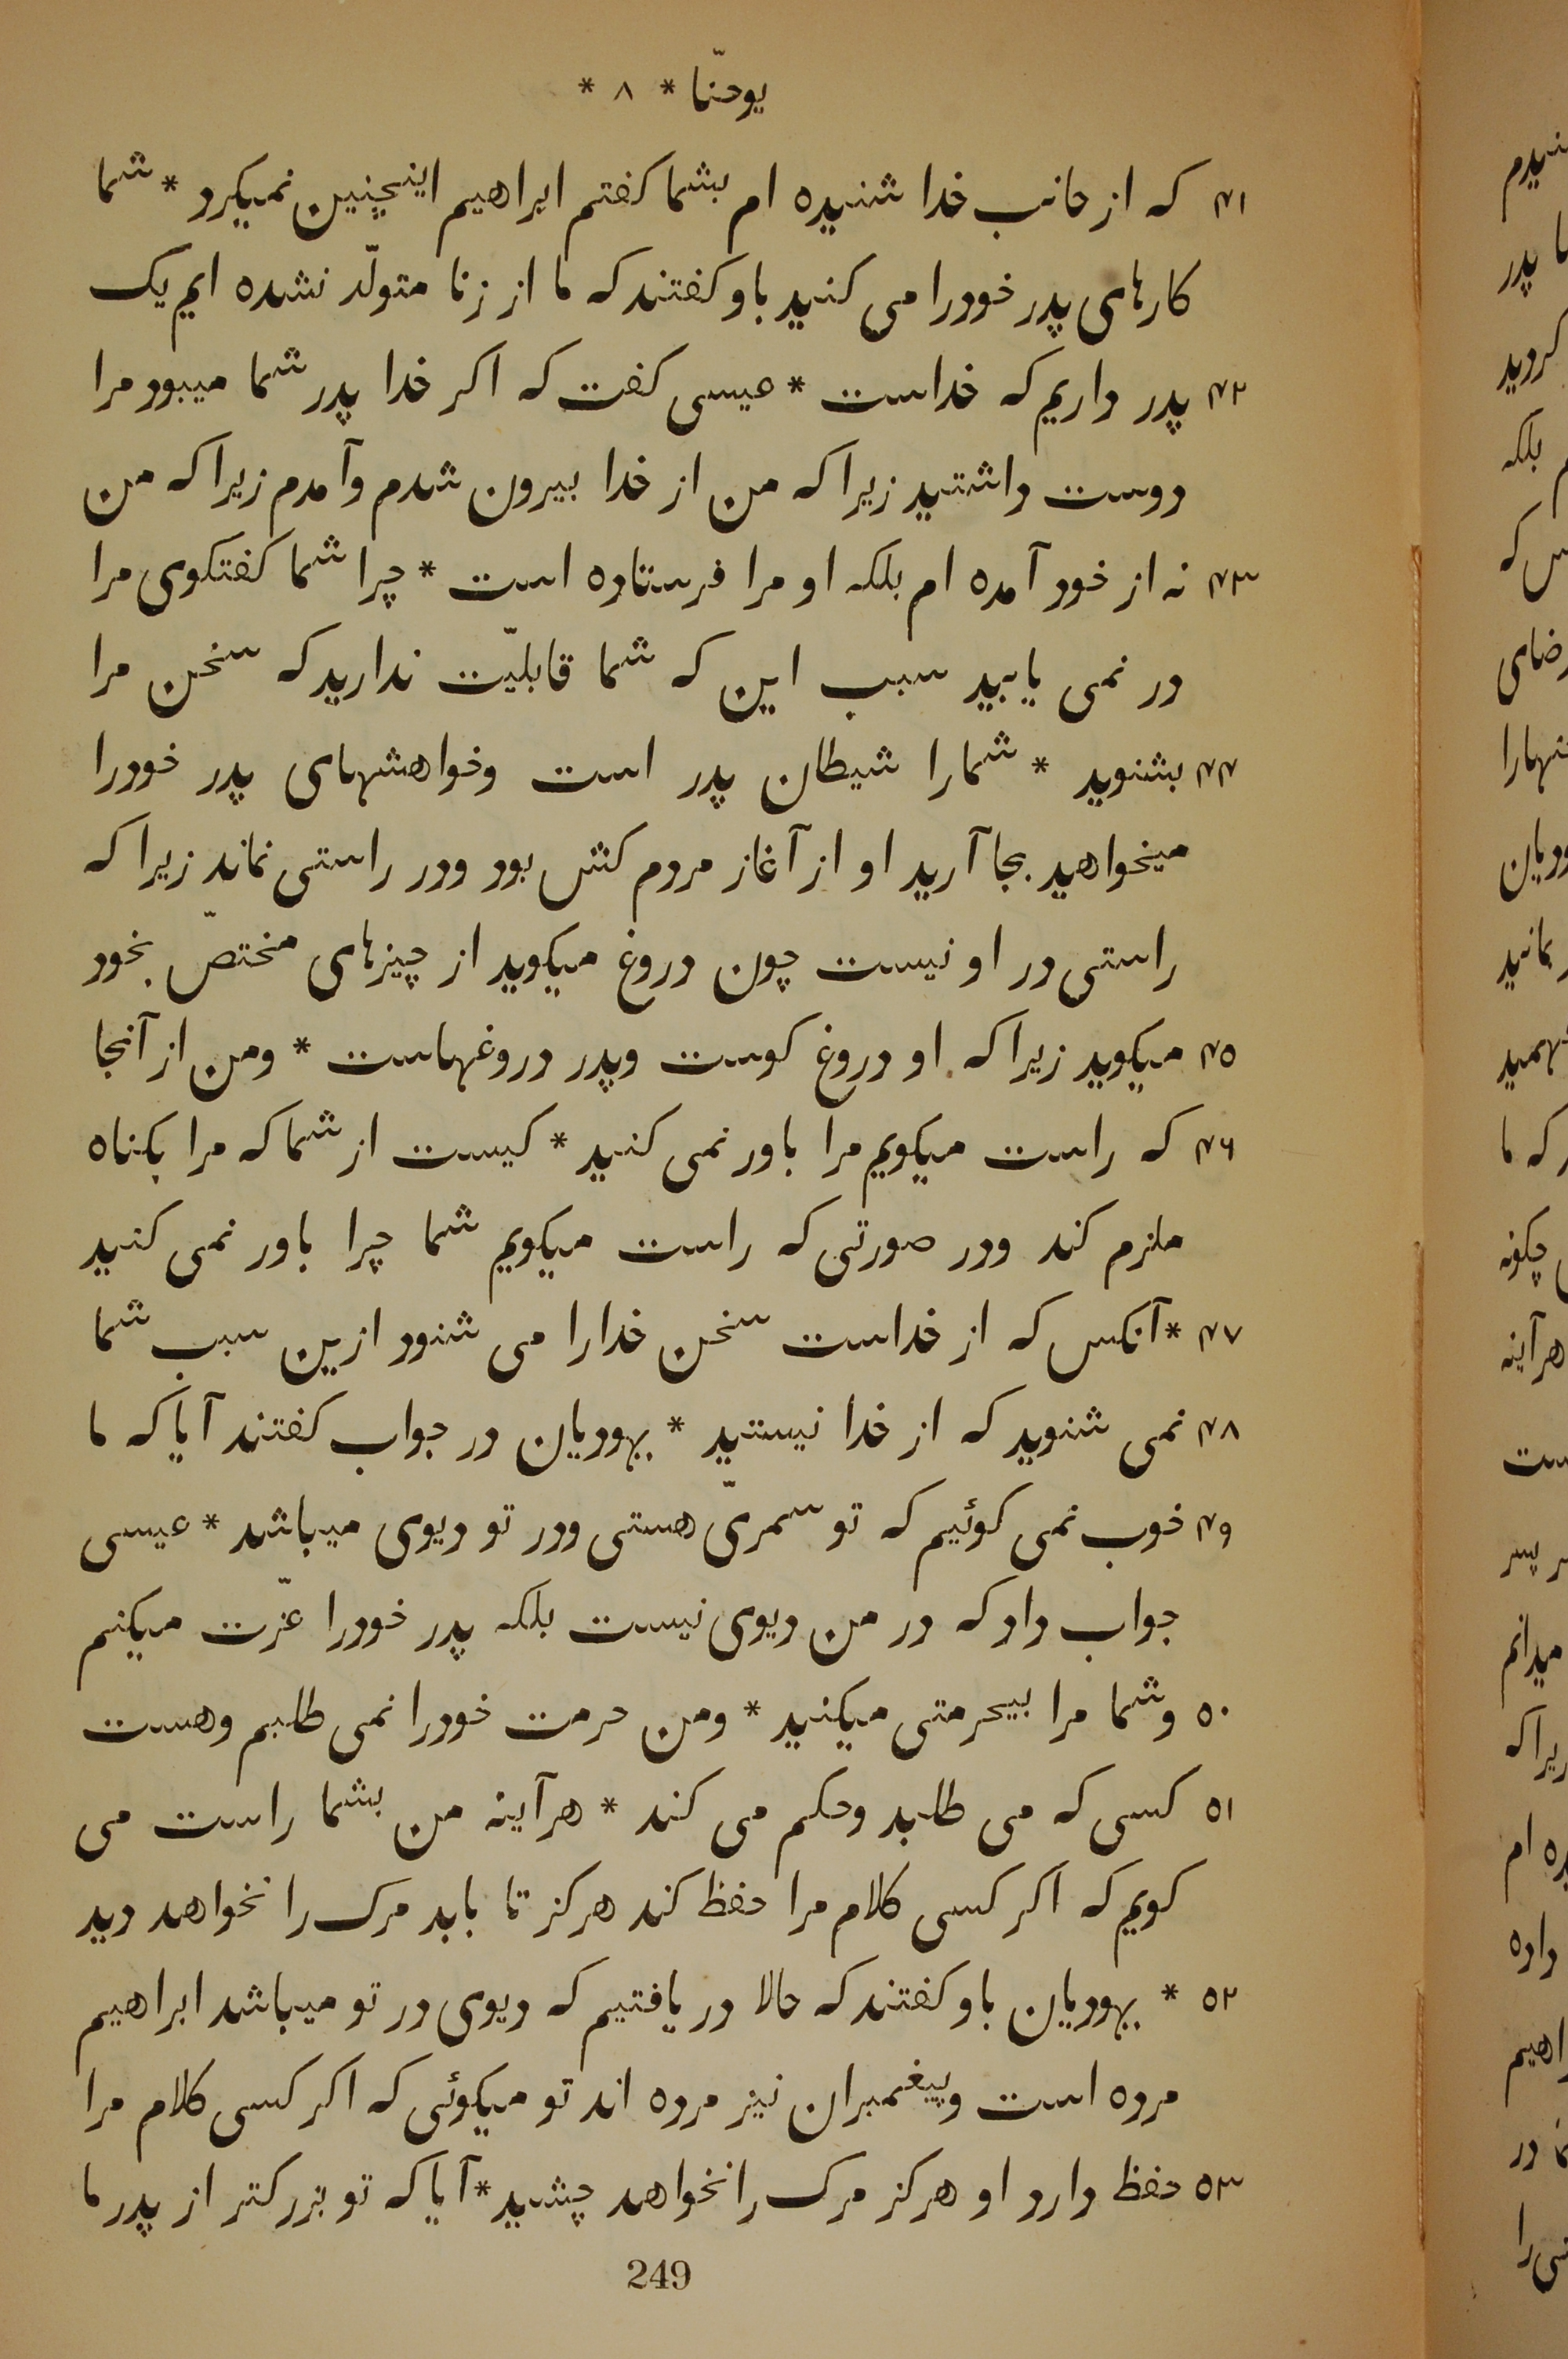 یوحنّا * ۸ *
۴۱ که از جانب خدا شنیده ام بشما کفتم ابراهیم اینچنین نمیکرد * شما
کارهای پدر خودرا می کنید باو کفتند که ما از زنا متولّد نشده ایم یک
۴۲ پدر داریم که خداست * عیسی کفت که اکر خدا پدر شما میبود مرا
دوست داشتید زیرا که من از خدا بیرون شدم وآمدم زیرا که من
۴۳ نه از خود آمده ام بلکه او مرا فرستاده است * چرا شما کفتکوی مرا
در نمی یابید سبب این که شما قابلیّت ندارید که سخن مرا
۴۴ بشنوید * شمارا شیطان پدر است وخواهشهای پدر خودرا
میخواهید بجا آرید او از آغاز مردم کش بود ودر راستی نماند زیرا که
راستی در او نیست چون دروغ میکوید از چیزهای مختصّ بخود
۴۵ میکوید زیرا که او دروغ کوست وپدر دروغهاست * ومن از آنجا
۴۶ که راست میکویم مرا باور نمی کنید * کیست از شما که مرا بکناه
ملزم کند ودر صورتی که راست میکویم شما چرا باور نمی کنید
۴۷ * آنکس که از خداست سخن خدارا می شنود ازین سبب شما
۴۸ نمی شنوید که از خدا نیستید * یهودیان در جواب کفتند آیا که ما
۴۹ خوب نمی کوئیم که تو سمریّ هستی ودر تو دیوی میباشد * عیسی
جواب داد که در من دیوی نیست بلکه پدر خودرا عزّت میکنم
۵۰ وشما مرا بیحرمتی میکنید * ومن حرمت خودرا نمی طلبم وهست
۵۱ کسی که می طلبد وحکم می کند * هرآینه من بشما راست می
کویم که اکر کسی کلام مرا حفظ کند هرکز تا بابد مرک را نخواهد دید
۵۲ * یهودیان باو کفتند که حالا در یافتیم که دیوی در تو میباشد ابراهیم
مرده است وپیغمبران نیز مرده اند تو میکوئی که اکر کسی کلام مرا
۵۳ حفظ دارد او هرکز مرک را نخواهد چشید * آیا که تو بزرکتر از پدر ما
249